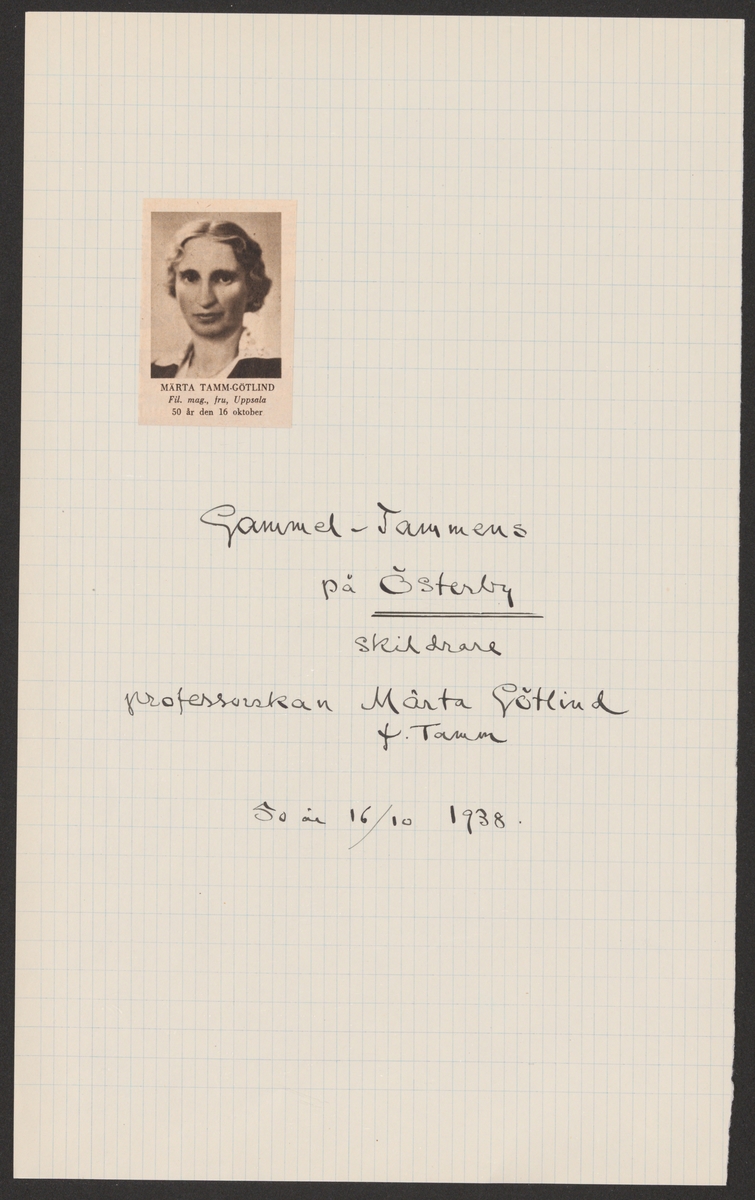 MÄRTA TAMM-GÖTLIND
Fil. mag., fru, Uppsala
50 år den 16 oktober
Gammel-Tammens
på Österby
skildrare
professorskan Märta Götlind
f. Tamm
50 år 16/10 1938.